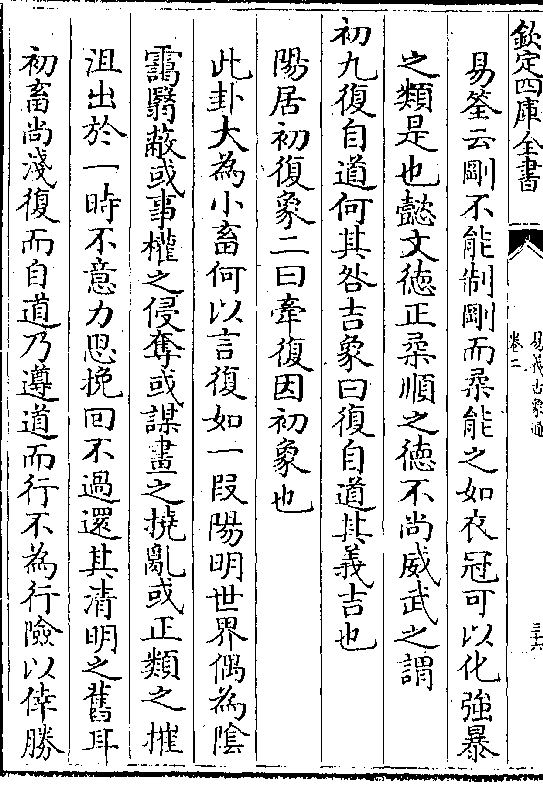 欽定四庫全書
易義古象通
卷二
三十六
易筌云剛不能制剛而柔能之如衣冠可以化強暴
之類是也懿文徳正柔順之徳不尚威武之謂
初九復自道何其咎吉象曰復自道其義吉也
陽居初復象二曰牽復因初象也
此卦大為小畜何以言復如一段陽明世界偶為陰
靄翳蔽或事權之侵奪或謀畫之撓亂或正類之摧
沮出於一時不意力思挽回不過還其清明之舊耳
初畜尚淺復而自道乃遵道而行不為行險以倖勝